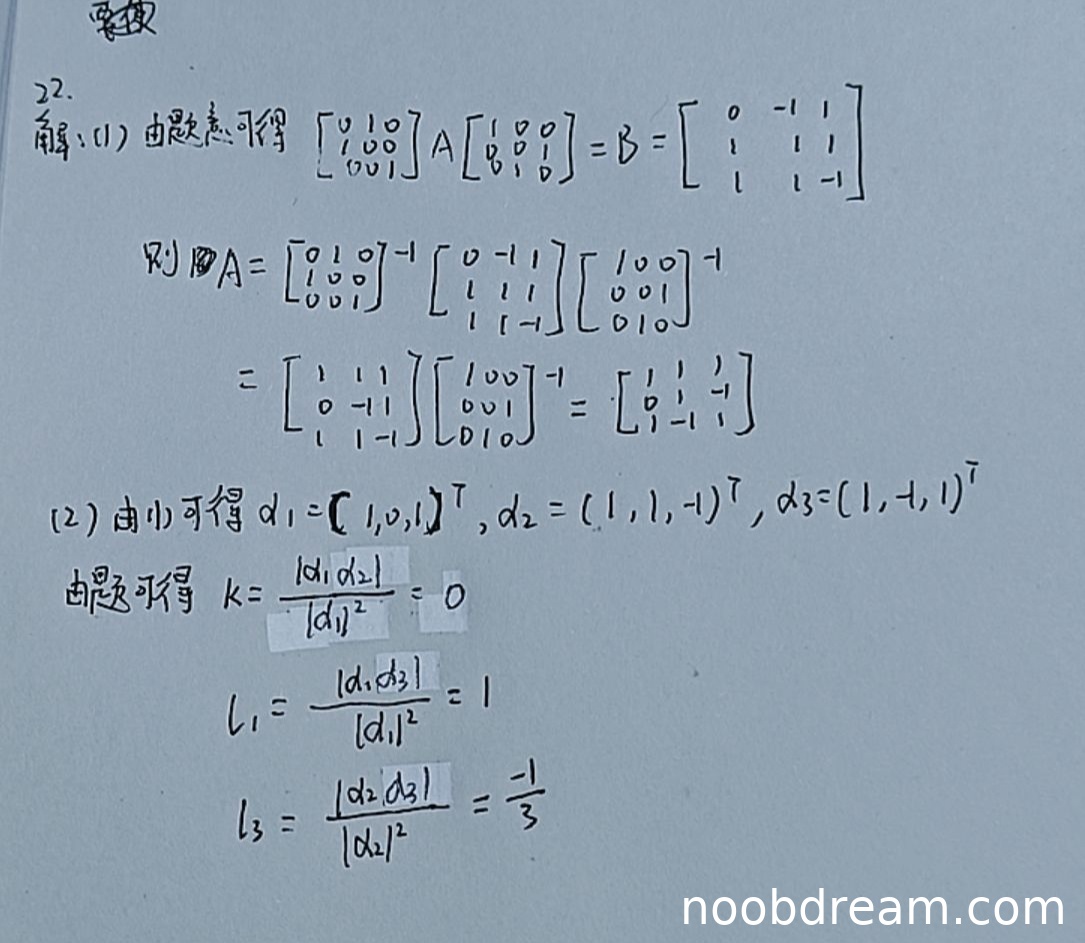 22.
解:(1) 由题意可得 [0 1 0; 1 0 0; 0 0 1] A [1 0 0; 0 0 1; 0 1 0] = B = [0 -1 1; 1 1 1; 1 1 -1]
则 A = [0 1 0; 1 0 0; 0 0 1]⁻¹ [0 -1 1; 1 1 1; 1 1 -1] [1 0 0; 0 0 1; 0 1 0]⁻¹
= [1 1 1; 0 -1 1; 1 1 -1] [1 0 0; 0 0 1; 0 1 0]⁻¹ = [1 1 1; 0 1 -1; 1 -1 1]
(2) 由(1)可得 α1 = (1,0,1)ᵀ, α2 = (1,1,-1)ᵀ, α3 = (1,-1,1)ᵀ
由题可得 k = |α1 α2| / |α1|² = 0
l1 = |α1 α3| / |α1|² = 1
l3 = |α2 α3| / |α2|² = -1/3
noobdream.com